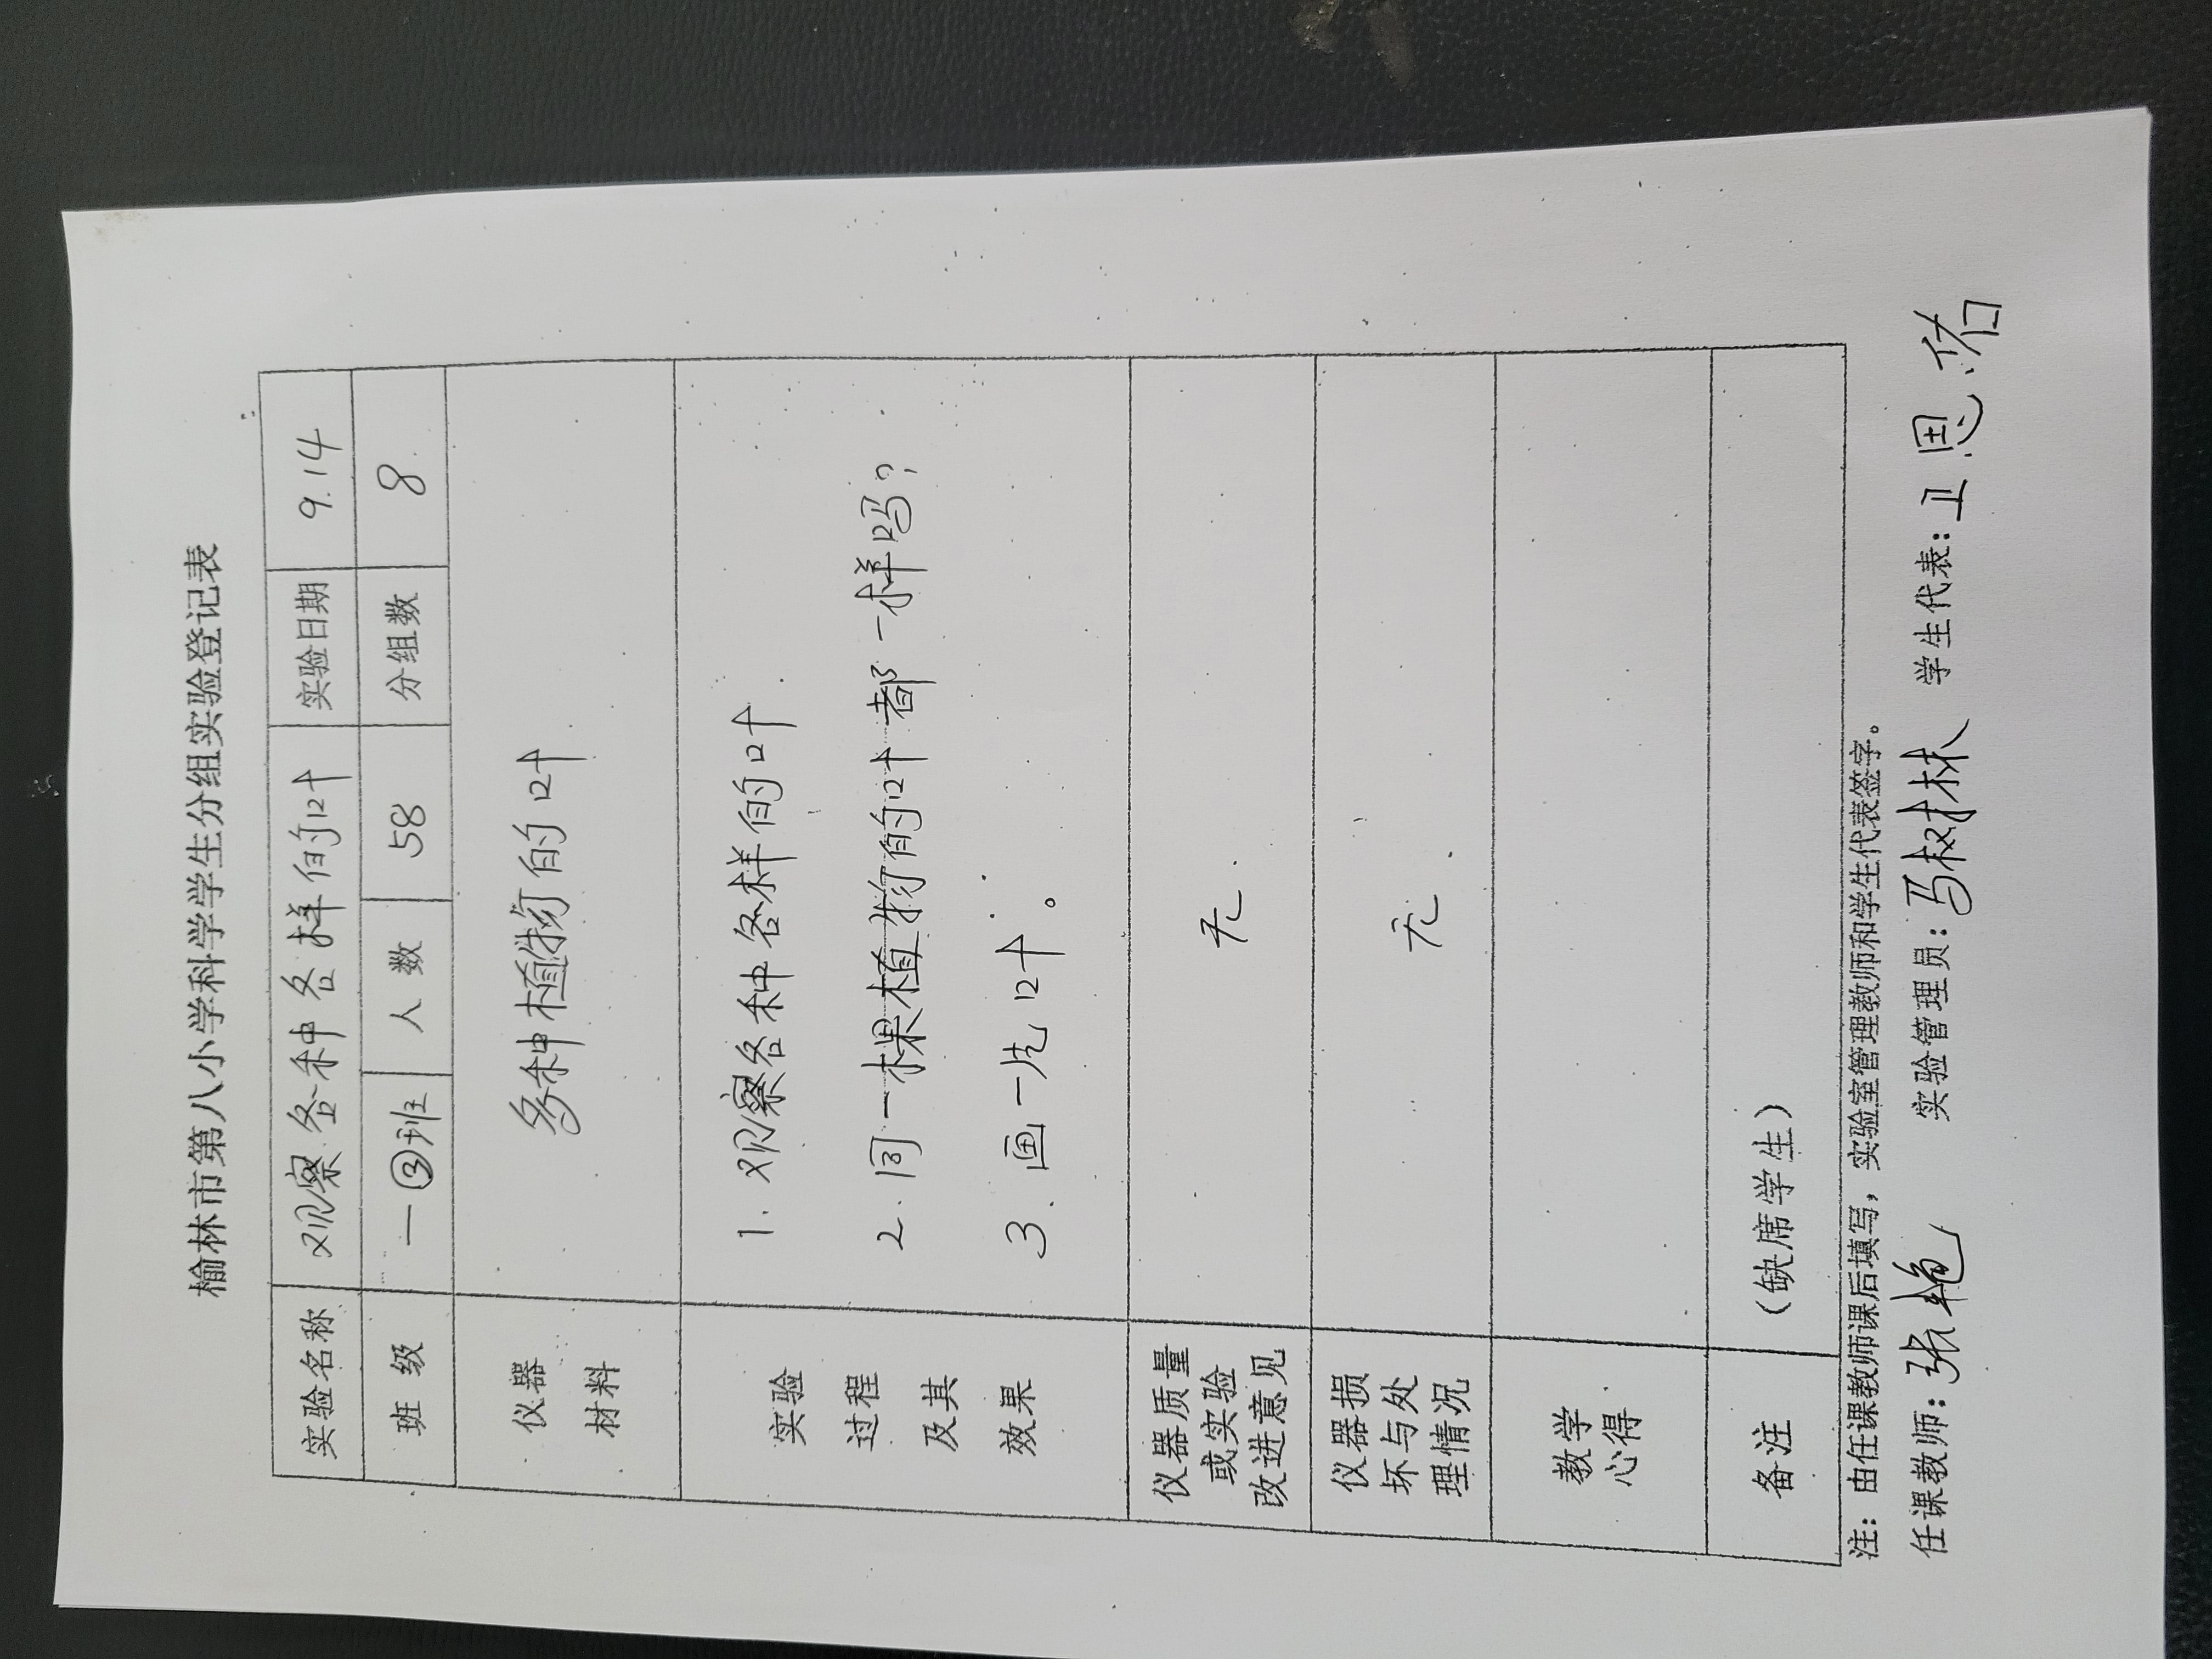 榆林市第八小学科学学生分组实验登记表
实验名称 观察各种各样的叶 实验日期 9.14
班 级 一③班 人 数 58 分组数 8
仪器
材料
多种植物的叶
实验
过程
及其
效果
1. 观察各种各样的叶
2. 同一棵植物的叶都一样吗?
3. 画一片叶。
仪器质量
或实验
改进意见
无.
仪器损
坏与处
理情况
无.
教学
心得
备注 (缺席学生)
注: 由任课教师课后填写, 实验室管理教师和学生代表签字。
任课教师: 张艳 实验管理员: 马树林 学生代表: 卫思佑